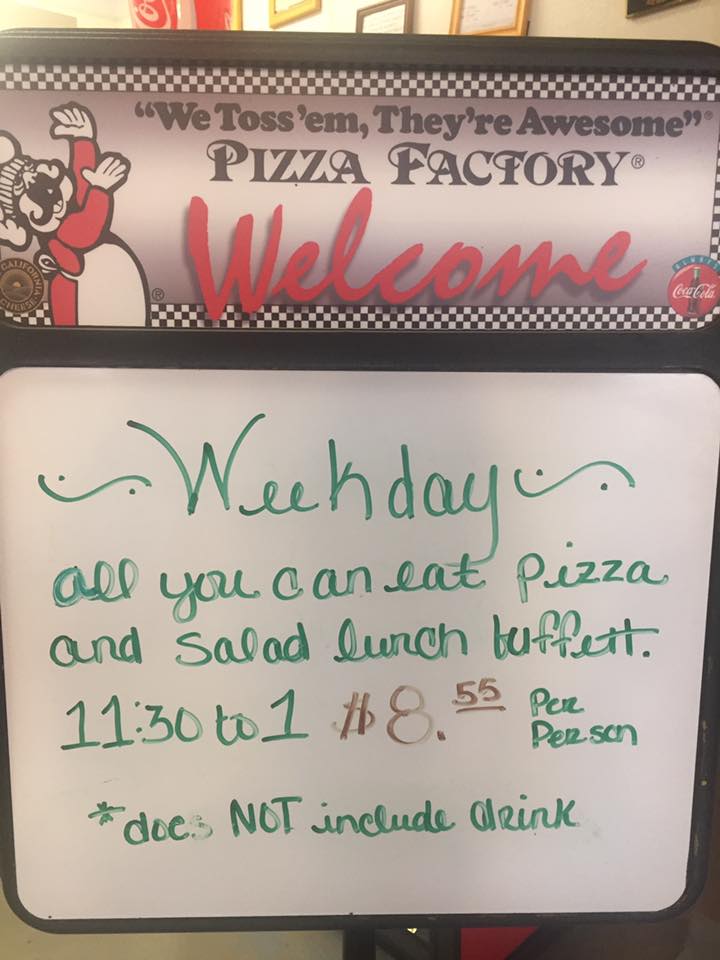 "We Toss'em, They're Awesome"®
PIZZA FACTORY®
Welcome
CALIFORNIA
CHEESE
®
ALWAYS
Coca-Cola
Weekday
all you can eat pizza
and salad lunch buffett.
11:30 to 1 $8.55 Per
Person
*does NOT include drink